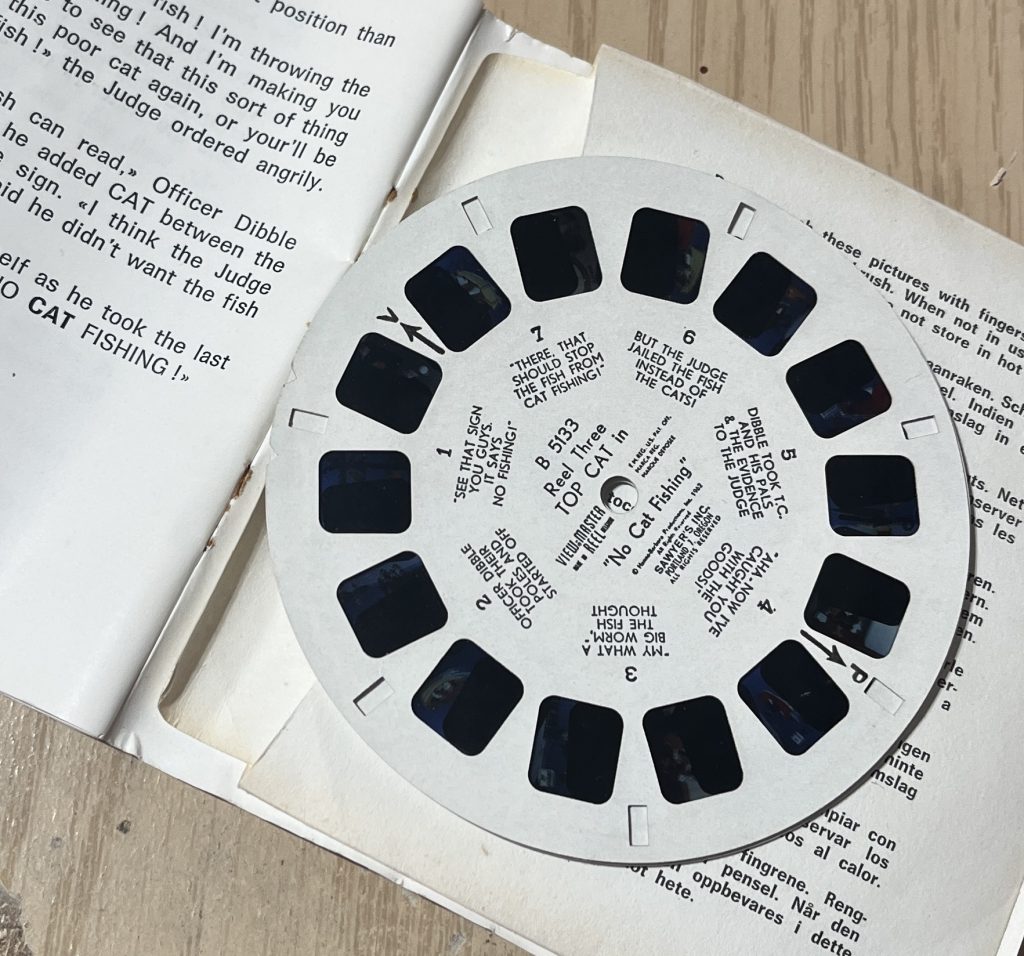 position than
fish ! I'm throwing the
ing ! And I'm making you
to see that this sort of thing
this poor cat again, or your'll be
fish !» the Judge ordered angrily.
can read,» Officer Dibble
he added CAT between the
sign. «I think the Judge
he didn't want the fish
as he took the last
CAT FISHING !»
7
"THERE, THAT
SHOULD STOP
THE FISH FROM
CAT FISHING!"
6
BUT THE JUDGE
JAILED THE FISH
INSTEAD OF
THE CATS!
5
DIBBLE TOOK T.C.
AND HIS PALS
& THE EVIDENCE
TO THE JUDGE
4
"AHA. NOW I'VE
CAUGHT YOU
WITH THE
GOODS!"
3
"MY WHAT A
BIG WORM,"
THE FISH
THOUGHT
2
OFFICER DIBBLE
TOOK THEIR
POLES AND
STARTED OFF
1
"SEE THAT SIGN
YOU GUYS.
IT SAYS
NO FISHING!"
B 5133
Reel Three
TOP CAT in
"No Cat Fishing"
VIEW-MASTER
REEL
© Hanna-Barbera Productions, Inc. 1962
All Rights Reserved
SAWYER'S INC.
PORTLAND 7, OREGON
ALL RIGHTS RESERVED
these pictures with fingers
When not in use
not store in hot
anraken.
Indien
in
Net
les
a
con
los
os al calor.
fingrene. Reng-
pensel. Når den
oppbevares i dette
hete.